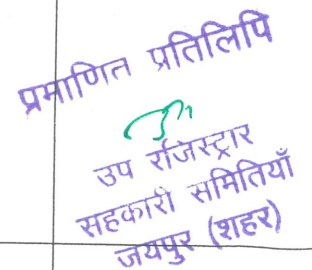 प्रमाणित प्रतिलिपि
उप रजिस्ट्रार
सहकारी समितियाँ
जयपुर (शहर)